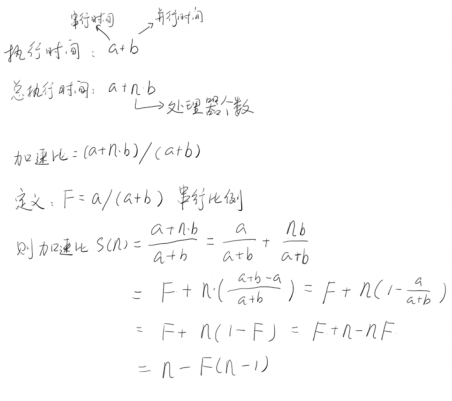 串行时间 并行时间
执行时间: a+b
总执行时间: a+n·b
处理器个数
加速比=(a+n·b)/(a+b)
定义: F=a/(a+b) 串行比例
则加速比 S(n) = \frac{a+n·b}{a+b} = \frac{a}{a+b} + \frac{nb}{a+b}
= F+n·(\frac{a+b-a}{a+b}) = F+n(1-\frac{a}{a+b})
= F+n(1-F) = F+n-nF
= n-F(n-1)